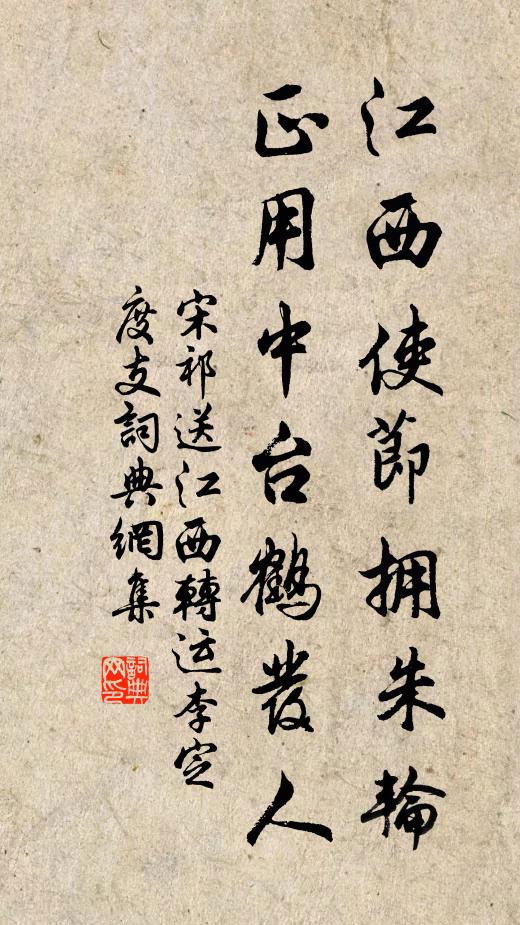 江西使節拥朱輪
正用中台鶴發人
宋祁送江西轉运李定
度支詞典網集
詞典网印